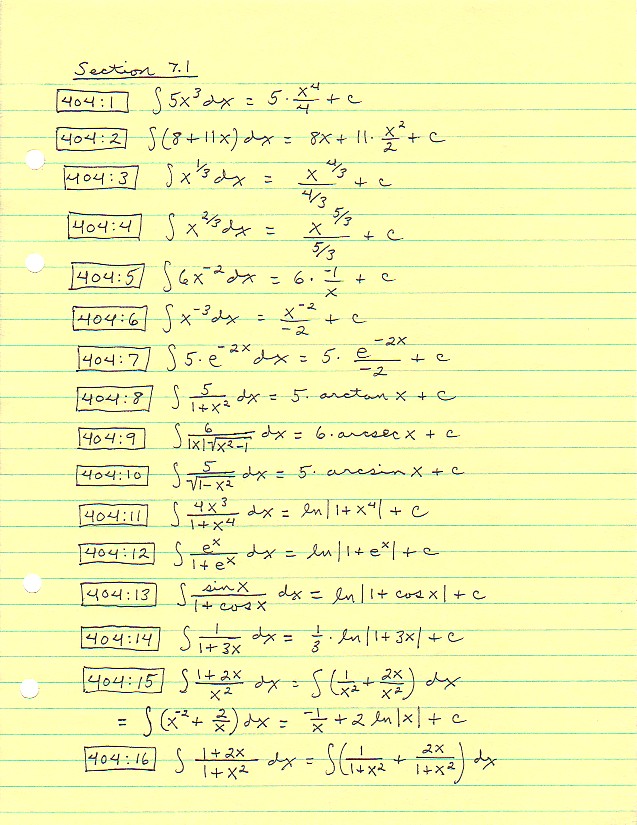 Section 7.1
404:1 ∫ 5x³ dx = 5 · x⁴/4 + c
404:2 ∫ (8 + 11x) dx = 8x + 11 · x²/2 + c
404:3 ∫ x^(1/3) dx = x^(4/3)/(4/3) + c
404:4 ∫ x^(2/3) dx = x^(5/3)/(5/3) + c
404:5 ∫ 6x⁻² dx = 6 · -1/x + c
404:6 ∫ x⁻³ dx = x⁻²/-2 + c
404:7 ∫ 5 · e^(-2x) dx = 5 · e^(-2x)/-2 + c
404:8 ∫ 5/(1+x²) dx = 5 · arctan x + c
404:9 ∫ 6/(|x|√(x²-1)) dx = 6 · arcsec x + c
404:10 ∫ 5/√(1-x²) dx = 5 · arcsin x + c
404:11 ∫ 4x³/(1+x⁴) dx = ln|1+x⁴| + c
404:12 ∫ eˣ/(1+eˣ) dx = ln|1+eˣ| + c
404:13 ∫ sin x/(1+cos x) dx = ln|1+cos x| + c
404:14 ∫ 1/(1+3x) dx = 1/3 · ln|1+3x| + c
404:15 ∫ (1+2x)/x² dx = ∫ (1/x² + 2x/x²) dx
= ∫ (x⁻² + 2/x) dx = -1/x + 2 ln|x| + c
404:16 ∫ (1+2x)/(1+x²) dx = ∫ (1/(1+x²) + 2x/(1+x²)) dx